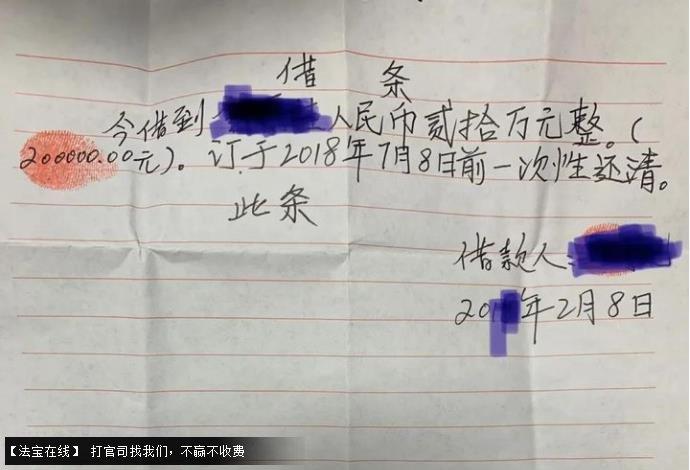 借 条
今借到 人民币贰拾万元整。(
200000.00元)。订于2018年7月8日前一次性还清。
此条
借款人:
20 年2月8日
【法宝在线】 打官司找我们，不赢不收费